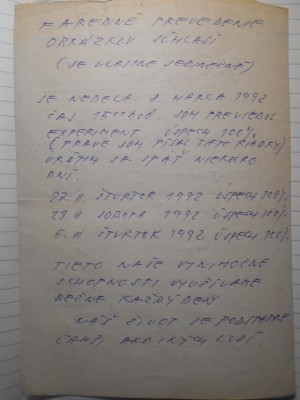 FAREBNÉ PREVEDENIE
OBRÁZKOV SÚHLASÍ
(JE VLASTNE JEDINEČNÉ)
JE NEDEĽA 8 MARCA 1992
ČAS 15 HOD. SOM PREVIEDOL
EXPERIMENT ÚSPECH 100%
(PRÁVE SOM PÍSAL TIETO RIADKY)
VRÁTIM SA SPÄŤ NIEKOĽKO
DNÍ.
27. II. ŠTVRTOK 1992 ÚSPECH 100%
29 II SOBOTA 1992 ÚSPECH 100%
5. III. ŠTVRTOK 1992 ÚSPECH 100%
TIETO NAŠE VÝNIMOČNÉ
SCHOPNOSTI VYUŽÍVAME
BEŽNE KAŽDÝ DEŇ
NÁŠ ŽIVOT JE PODSTATNE
ĽAHŠÍ, AKO INÝCH ĽUDÍ.